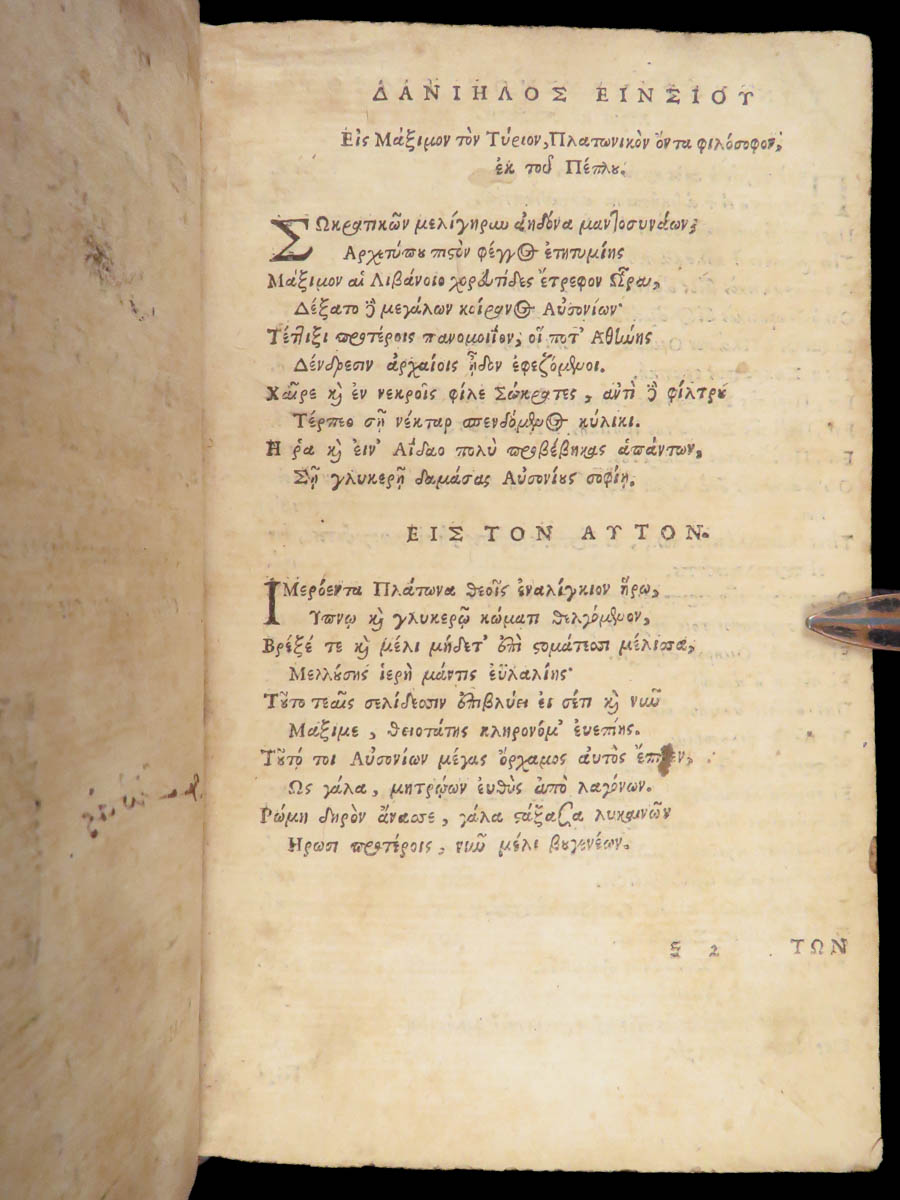 ΔΑΝΙΗΛΟΣ ΕΙΝΣΙΟΥ
Εἰς Μάξιμον τὸν Τύριον, Πλατωνικὸν ὄντα φιλόσοφον,
ἐκ τοῦ Πέπλου.
ΣΩκρατικῶν μελίγηρυν ἀηδόνα μαντοσυνάων,
Αρχετύπου πιστὸν φέγγος ἐτητυμίης
Μάξιμον αἱ Λιβάνοιο χοροίτιδες ἔτρεφον Ὧραι,
Δέξατο δὲ μεγάλων κοίρανος Αὐσονίων·
Τέττιξι προτέροις πανομοίϊον, οἵ ποτ' Αθήνης
Δένδρεσιν ἀρχαίοις ᾖδον ἐφεζόμενοι.
Χαῖρε καὶ ἐν νεκροῖς φίλε Σώκρατες, ἀντὶ δὲ φίλτρου
Τέρπεο σῇ νέκταρ σπενδόμενος κύλικι.
Η ῥα καὶ εἰν' Αΐδαο πολὺ προβέβηκας ἁπάντων,
Σῇ γλυκερῇ δαμάσας Αὐσονίους σοφίῃ.
ΕΙΣ ΤΟΝ ΑΥΤΟΝ.
ΙΜερόεντα Πλάτωνα θεοῖς ἐναλίγκιον ἥρω,
Υπνῳ καὶ γλυκερῷ κώματι θελγόμενον,
Βρέξέ τε καὶ μέλι μήδετ' ἐπὶ στομάτεσσι μέλισσα,
Μελλούσης ἱερὴ μάντις ἐϋλαλίης·
Τοῦτο τεαῖς σελίδεσσιν ἐπιβλύει εἰ σέτι καὶ νῦν
Μάξιμε, θειοτάτης κληρονόμ' ἐυεπίης.
Τοῦτό τοι Αὐσονίων μέγας ὄρχαμος αὐτὸς ἔπιεν,
Ως γάλα, μητρῴων ἐυθὺς ἀπὸ λαγόνων.
Ρώμη δηρὸν ἄνασσε, γάλα στάξασα λυκαινῶν
Ηρωσι προτέροις, νῦν μέλι βουγενέων.
§ 2 ΤΩΝ